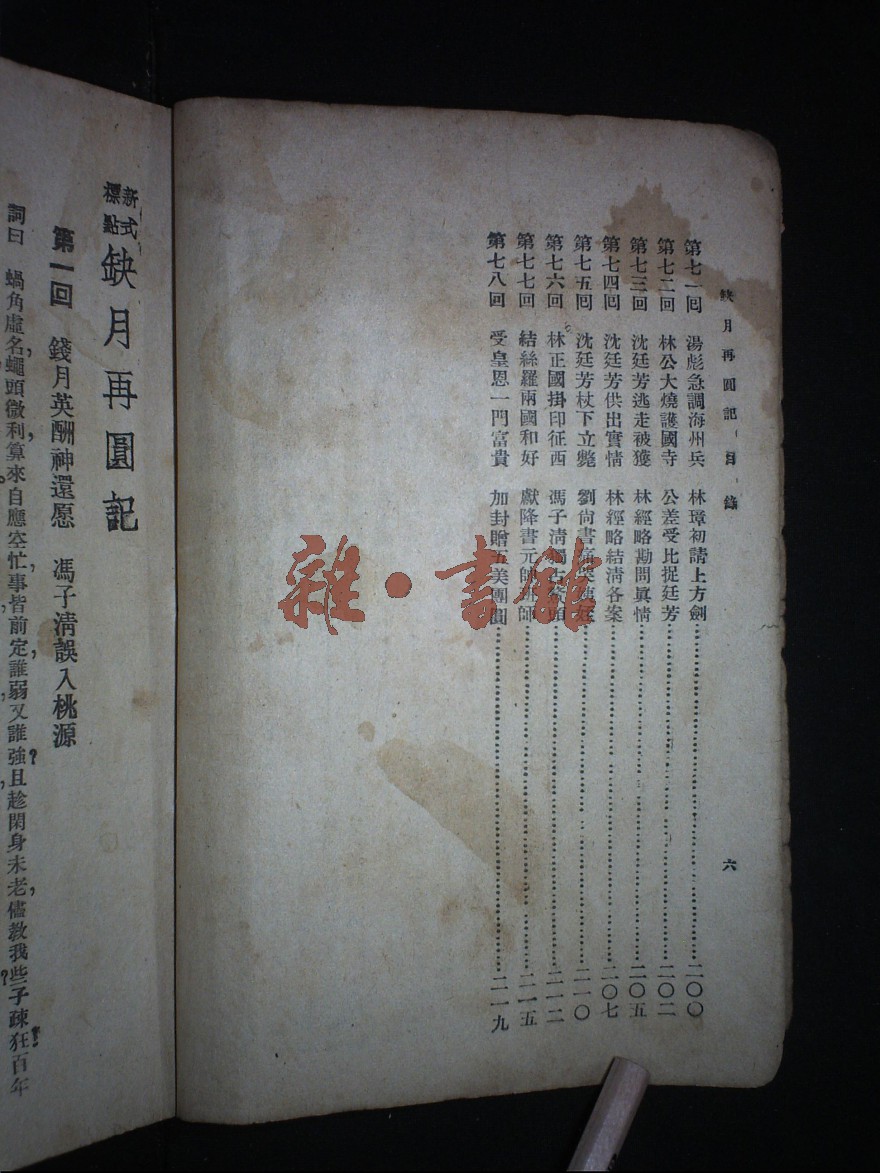 缺月再圓記(目錄
六
第七一囘 湯彪急調海州兵 林璋初請上方劍 二〇〇
第七二囘 林公大燒護國寺 公差受比捉廷芳 二〇二
第七三囘 沈廷芳逃走被獲 林經略勘問眞情 二〇五
第七四囘 沈廷芳供出實情 林經略結淸各案 二〇七
第七五囘 沈廷芳杖下立斃 劉尙書 二一〇
第七六囘 林正國掛印征西 馮子淸獨占 二一二
第七七囘 結絲羅兩國和好 獻降書元帥 師 二一五
第七八囘 受皇恩一門富貴 加封贈五美團圓 二一九
雜·書館
新式標點 缺月再圓記
第一囘 錢月英酬神還愿 馮子淸誤入桃源
詞曰 蝸角虛名,蠅頭微利,算來自應空忙,事皆前定,誰弱又誰強?且趁閑身未老,儘教我些子疎狂!百年